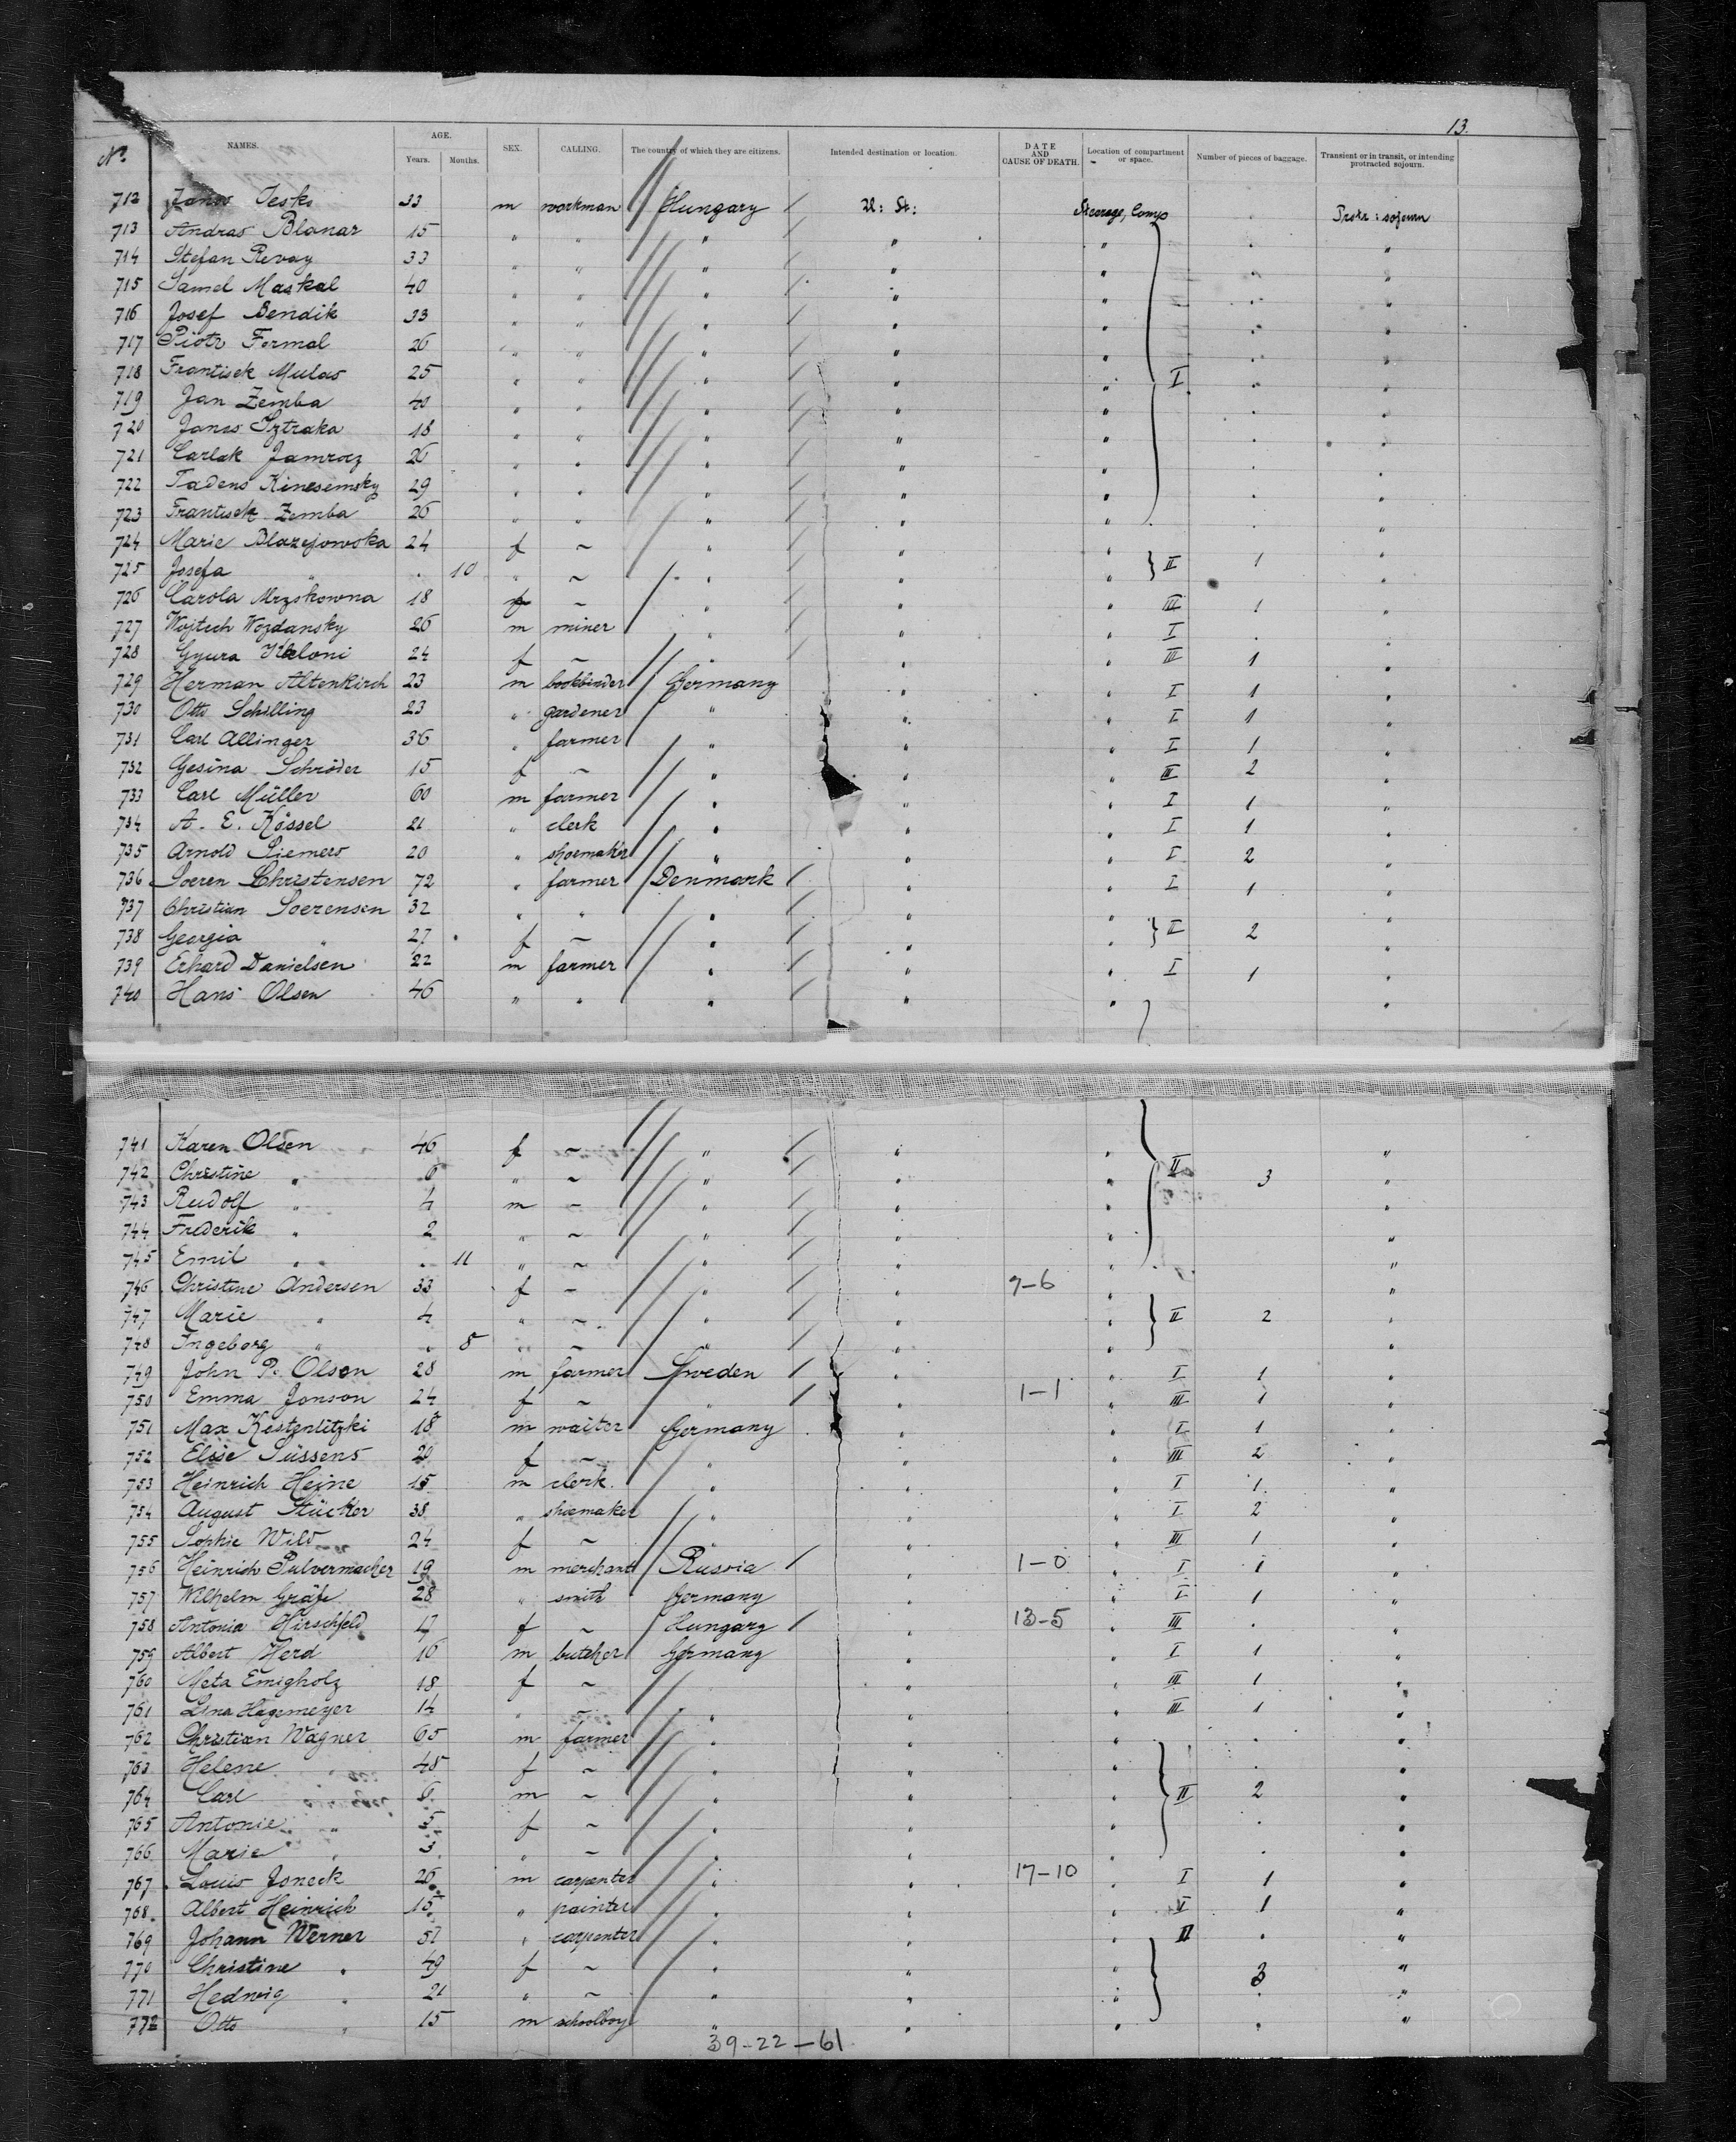 13.
No. NAMES. AGE. Years. Months. SEX. CALLING. The country of which they are citizens. Intended destination or location. DATE AND CAUSE OF DEATH. Location of compartment or space. Number of pieces of baggage. Transient or in transit, or intending protracted sojourn.
712 Janos 33 m workman Hungary U: St: Steerage, Comp Protr: sojourn
713 Andras Blanar 15 " " " " " "
714 Stefan Revay 33 " " " " " "
715 Samel Maskal 40 " " " " " "
716 Josef Bendik 33 " " " " " "
717 Piotr Fermal 26 " " " " " "
718 Frantisek Mulas 25 " " " " " I "
719 Jan Zemba 40 " " " " " "
720 Janos Sztraka 18 " " " " " "
721 Carlak Jamroz 26 " " " " " "
722 Tadeus Kinesemsky 29 " " " " " "
723 Frantisek Zemba 26 " " " " " "
724 Marie Blazejowska 24 f ~ " " " "
725 Josefa " 10 " ~ " " " II 1 "
726 Carola Mrzskowna 18 f ~ " " " III 1 "
727 Wojtech Wozdansky 26 m miner " " " I "
728 Gyura 24 f ~ " " " III 1 "
729 Herman Altenkirch 23 m bookbinder Germany " " I 1 "
730 Otto Schilling 23 " gardener " " " I 1 "
731 Carl Allinger 36 " farmer " " " I 1 "
732 Gesina Schröder 15 f ~ " " " III 2 "
733 Carl Müller 60 m farmer " " " I 1 "
734 A. E. Kössel 21 " clerk " " " I 1 "
735 Arnold Siemers 20 " shoemaker " " " I 2 "
736 Soeren Christensen 72 " farmer Denmark " " I 1 "
737 Christian Soerensen 32 " " " " " "
738 Georgia " 27 f ~ " " " II 2 "
739 Erhard Danielsen 22 m farmer " " " I 1 "
740 Hans Olsen 46 " " " " " "
741 Karen Olsen 46 f ~ " " " "
742 Christine " 6 " ~ " " " II 3 "
743 Rudolf " 4 m ~ " " " "
744 Frederik " 2 " ~ " " " "
745 Emil " 11 " ~ " " " "
746 Christine Andersen 33 f ~ " " 9-6 " "
747 Marie " 4 " ~ " " " II 2 "
748 Ingeborg " 8 " ~ " " " "
749 John P. Olson 28 m farmer Sweden " " I 1 "
750 Emma Jonson 24 f ~ " " 1-1 " III 1 "
751 Max 18 m waiter Germany " " I 1 "
752 Elsie Süssens 20 f ~ " " " III 2 "
753 Heinrich Heine 15 m clerk " " " I 1 "
754 August Stücker 38 " shoemaker " " " I 2 "
755 Sophie Wild 24 f ~ " " " III 1 "
756 Heinrich Pulvermacher 19 m merchant Russia " 1-0 " I 1 "
757 Wilhelm Gräfe 28 " smith Germany " " I 1 "
758 Antonia Hirschfeld 17 f ~ Hungary " 13-5 " III "
759 Albert Herd 16 m butcher Germany " " I 1 "
760 Meta Emigholz 18 f ~ " " III 1 "
761 Lina Hagemeyer 14 " ~ " " " III 1 "
762 Christian Wagner 65 m farmer " " " "
763 Helene " 48 f ~ " " " "
764 Carl " 6 m ~ " " " II 2 "
765 Antonie " 5 f ~ " " " "
766 Marie " 3 " ~ " " " "
767 Louis Joneck 26 m carpenter " " 17-10 " I 1 "
768 Albert Heinrich 15 " painter " " " 1 "
769 Johann Werner 51 " carpenter " " " II "
770 Christine " 49 f ~ " " " 3 "
771 Hedwig " 21 " ~ " " " "
772 Otto " 15 m schoolboy " " " "
39-22-61